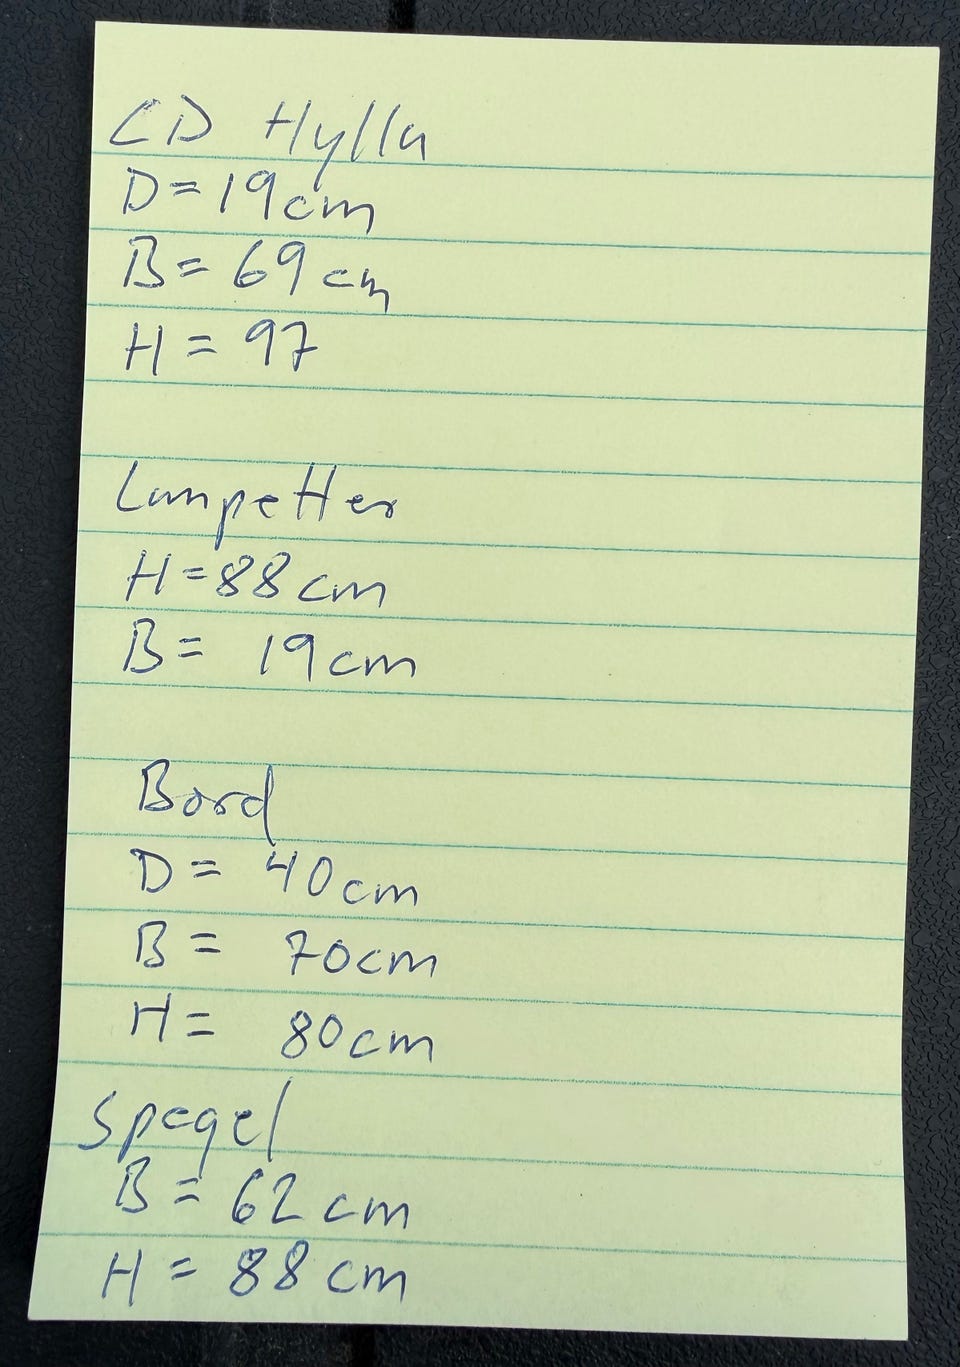 CD Hylla
D=19cm
B=69cm
H=97
Lampetter
H=88cm
B= 19cm
Bord
D= 40cm
B= 70cm
H= 80cm
Spegel
B= 62cm
H= 88cm